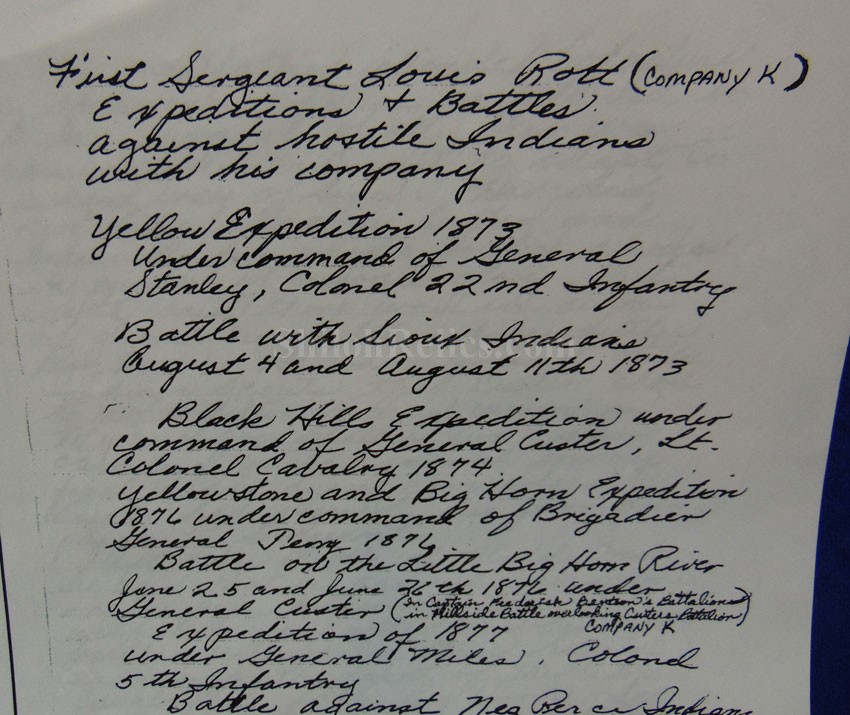 First Sergeant Louis Rott (COMPANY K)
Expeditions + Battles
against hostile Indians
with his company
Yellow Expedition 1873
Under command of General
Stanley, Colonel 22nd Infantry
Battle with Sioux Indians
August 4 and August 11th 1873
Black Hills Expedition under
command of General Custer, Lt.
Colonel Cavalry 1874.
Yellowstone and Big Horn Expedition
1876 under command of Brigadier
General Terry 1876
Battle on the Little Big Horn River
June 25 and June 26th 1876 under
General Custer (in Captain Frederick Benteen's Battalion
in Hillside Battle overlooking Custers Battalion)
COMPANY K
Expedition of 1877
under General Miles, Colonel
5th Infantry
Battle against Nez Perce Indians